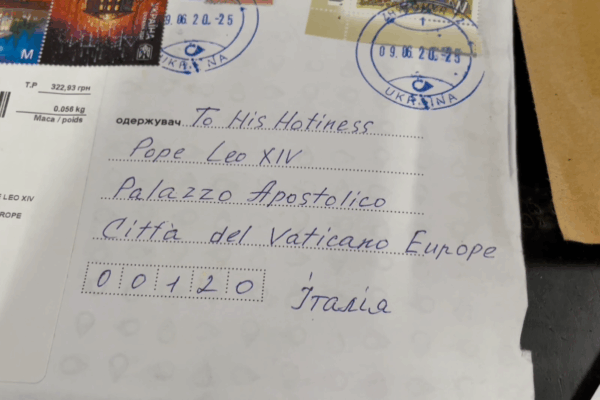 M
T.P 322,93 грн
0.056 kg
Maca / poids
LEO XIV
ROPE
09.06.20.-25
UKRAINA
09.06.20.-25
UKRAINA
одержувач To His Hotiness
Pope Leo XIV
Palazzo Apostolico
Città del Vaticano Europe
00120
Італія